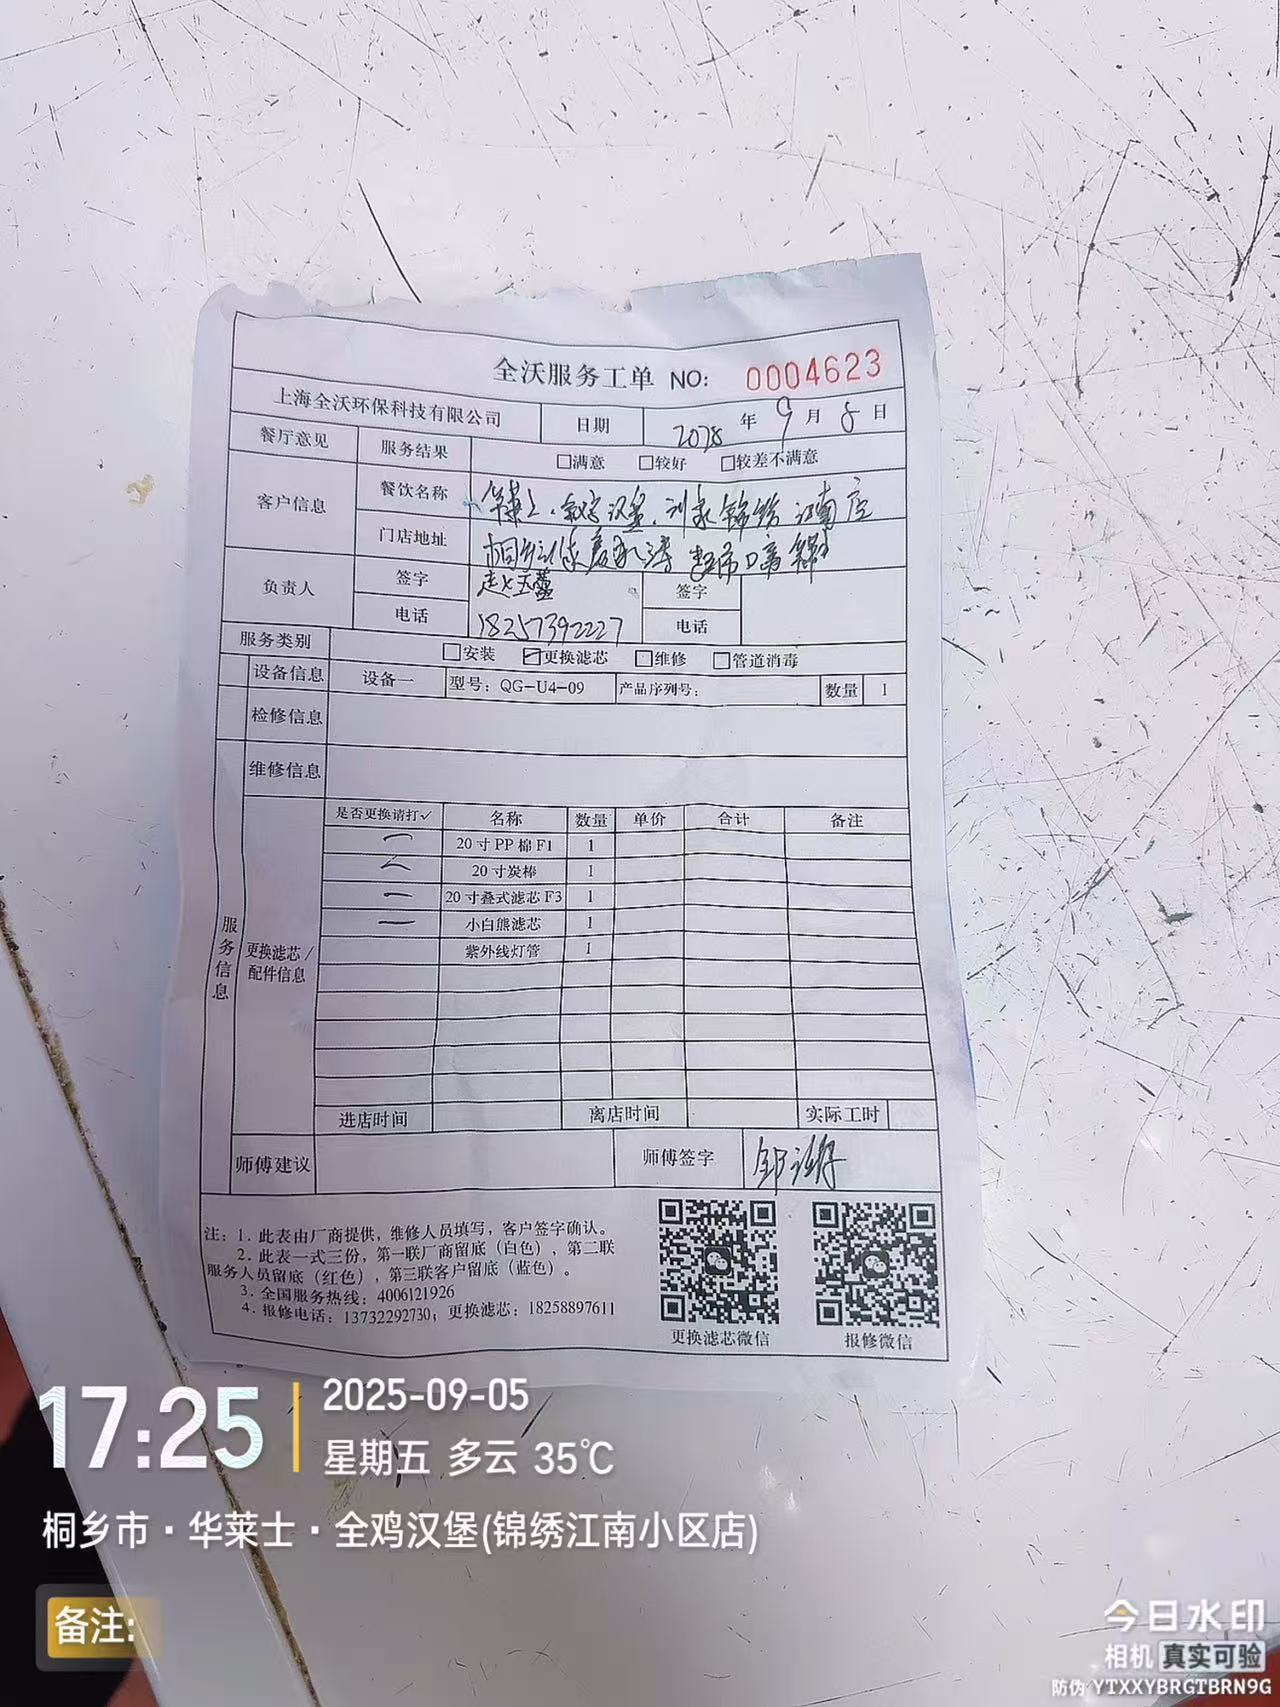 全沃服务工单 NO: 0004623
上海全沃环保科技有限公司 日期 年 9 月 日
餐厅意见 服务结果 □满意 □较好 □较差不满意
客户信息 餐饮名称 江南店
门店地址
负责人 签字 赵玉蕾 签字
电话 18257392227 电话
服务类别 □安装 ☑更换滤芯 □维修 □管道消毒
设备信息 设备一 型号：QG-U4-09 产品序列号： 数量 1
检修信息
维修信息
服务信息
更换滤芯/
配件信息
是否更换请打✓ 名称 数量 单价 合计 备注
20寸PP棉F1 1
20寸炭棒 1
20寸叠式滤芯F3 1
小白熊滤芯 1
紫外线灯管 1
进店时间 离店时间 实际工时
师傅建议 师傅签字
注：1. 此表由厂商提供，维修人员填写，客户签字确认。
2. 此表一式三份，第一联厂商留底（白色），第二联
服务人员留底（红色），第三联客户留底（蓝色）。
3. 全国服务热线：4006121926
4. 报修电话：13732292730；更换滤芯：18258897611
更换滤芯微信 报修微信
17:25 2025-09-05
星期五 多云 35℃
桐乡市·华莱士·全鸡汉堡(锦绣江南小区店)
备注:
今日水印
相机 真实可验
防伪 YTXXYBRGTBRN9G